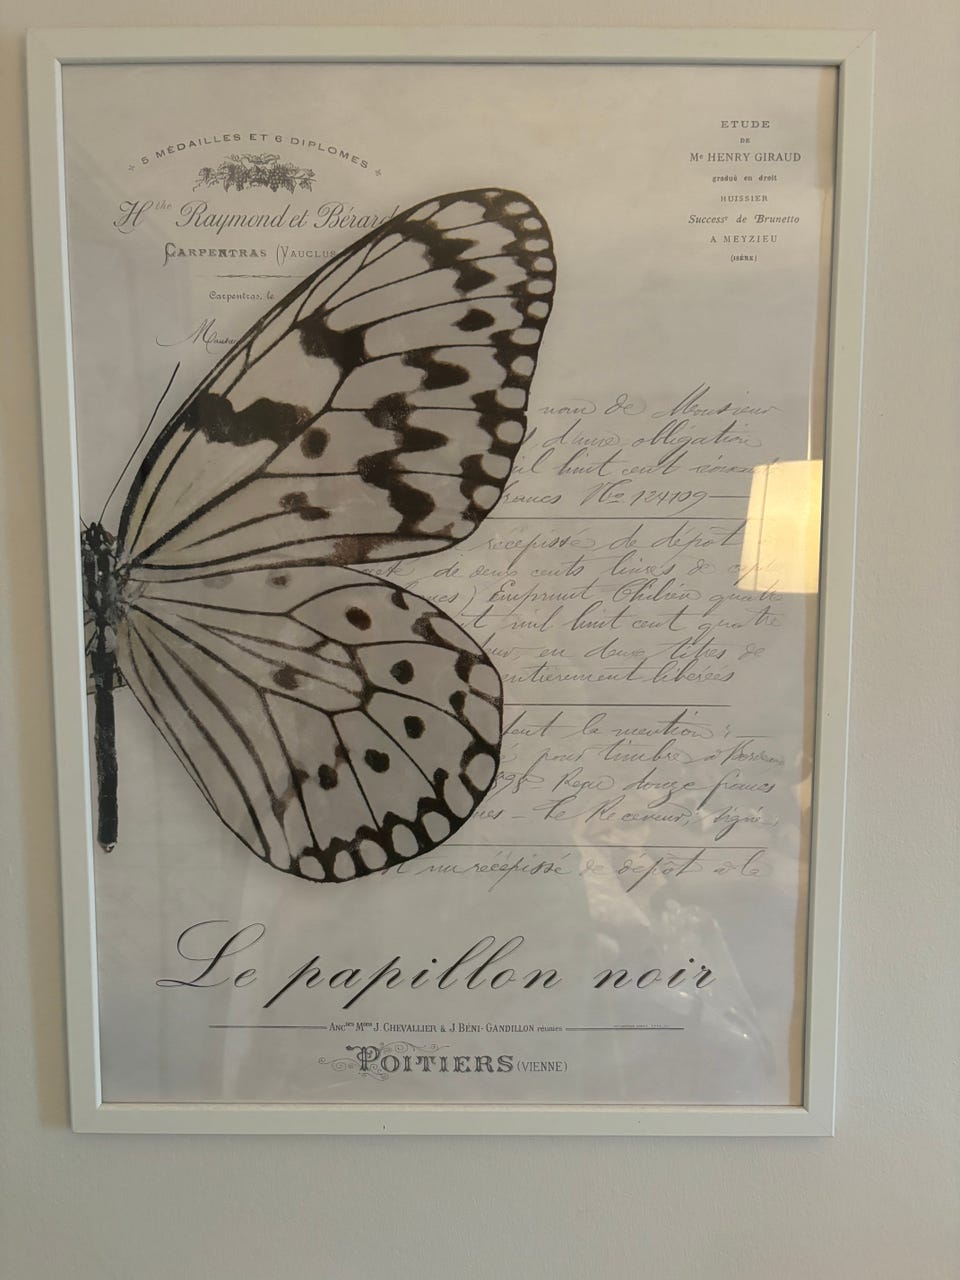 5 MÉDAILLES ET 6 DIPLOMES
Hthe Raymond et Bérard
CARPENTRAS (VAUCLUS
Carpentras, le
ETUDE
DE
Me HENRY GIRAUD
gradué en droit
HUISSIER
Succesr de Brunetto
A MEYZIEU
(ISÈRE)
nom de Monsieur
d'une obligation
mil huit cent
francs No 124109
récépissé de dépôt
de deux cents livres de
Emprunt Chilien quatre
mil huit cent quatre
en deux titres de
entièrement libérés
la mention :
pour timbre à
Reçu douze francs
Le Receveur, signé,
récépissé de dépôt
Le papillon noir
ANCnes MONS J. CHEVALLIER & J. BÉNI-GANDILLON réunies
POITIERS (VIENNE)